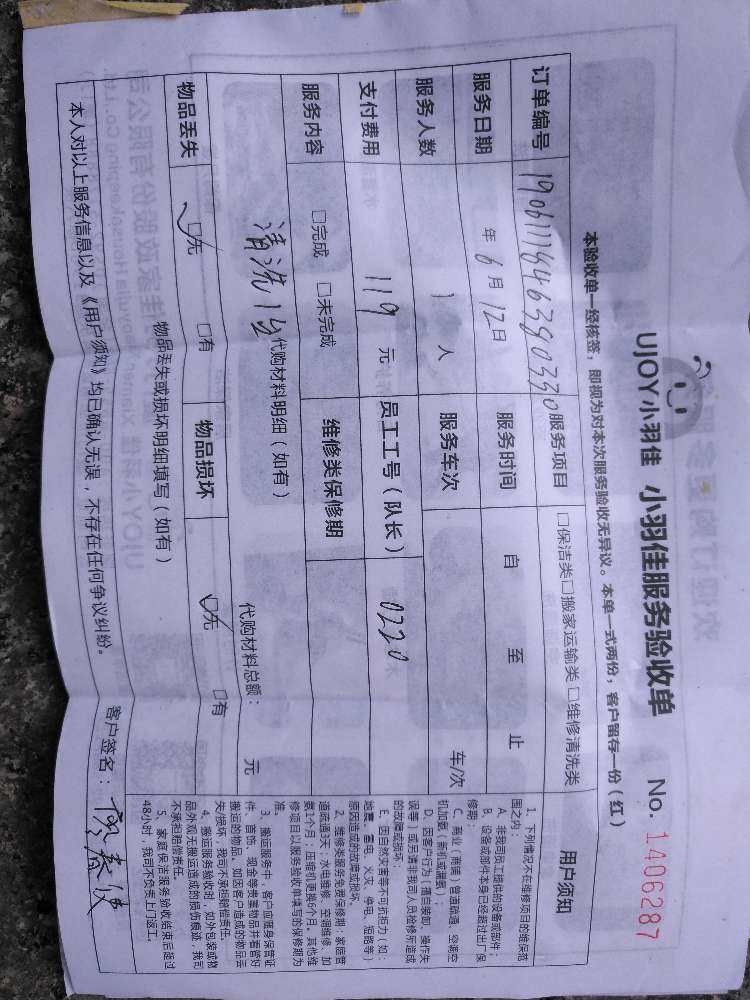 UJOY小羽佳 小羽佳服务验收单 No. 1406287
本验收单一经核签，即视为对本次服务验收无异议。本单一式两份，客户留存一份（红）
订单编号 服务项目 □保洁类□搬家运输类 □维修清洗类
服务日期 年 6 月 12 日 服务时间 自 至 止
服务人数 1 人 服务车次 车/次
支付费用 119 元 员工工号（队长） 0220
服务内容 □完成 □未完成 维修类保修期
清洗1台
代购材料明细（如有） 代购材料总额： 元
物品丢失 □无 □有 物品损坏 □无 □有
物品丢失或损坏明细填写（如有）
本人对以上服务信息以及《用户须知》均已确认无误，不存在任何争议纠纷。 客户签名：
用户须知
1、下列情况不在维修项目的维保范
围之内：
A、非我司员工提供的设备或部件；
B、设备或部件本身已经超过出厂保
修期；
C、商业（商铺）管道疏通、空调空
D、因客户行为（擅自装卸、操作失
误等）或邀请非我司人员维修所造成
的故障或损坏；
E、因自然灾害等不可抗拒力（如：
地震、雷电、火灾、停电、短路等）
原因造成的故障或损坏。
2、维修类服务免费保修期：家庭管
道疏通3天，水电维修、空调维修、加
氨1个月；压缩机更换6个月。其他维
修项目以服务验收单填写的保修期为
准。
3、搬运服务中，客户应随身保管证
件、首饰、现金等贵重物品并看管好
搬运的物品。如因客户造成的物品丢
失/损坏，我司不承担赔偿责任。
4、搬运服务验收时，如外包装或物
品外观无搬运造成的损伤痕迹，我司
不承担赔偿责任。
5、家庭保洁服务验收结束后超过
48小时，我司不负责上门返工。